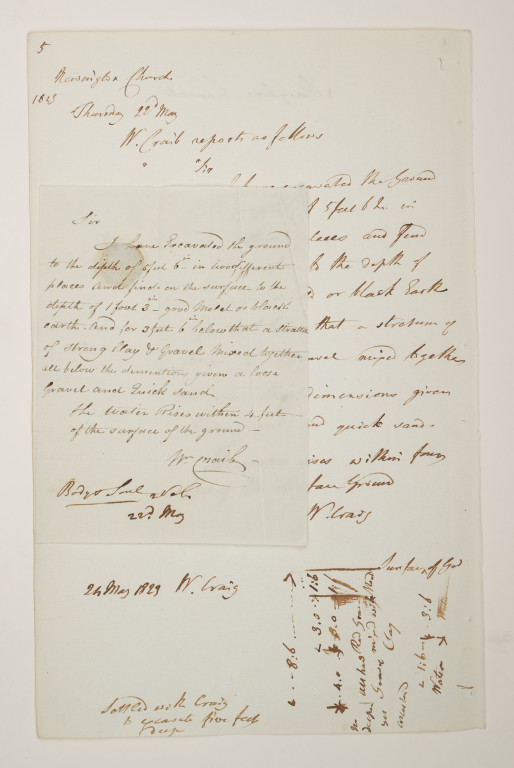 5
Church
1823
Thursday 22d May
W. Craib reports as follows
Sir
I have Excavated the ground
to the depth of 5 feet 6 in in two different
places and find on the surface to the
depth of 1 foot 3 in good Moed or black
earth. And for 3 feet 6 in below that a stratum
of strong Clay & Gravel Mixed together
all below the dimentions given a loose
Gravel and Quick Sand
the Water Rises within 4 feet
of the surface of the ground
Wm Craib
22d May
excavated the Ground
5 feet 6 in
places and find
to the depth of
or black Earth
that a stratum of
mixed together
dimensions given
quick sand
within four
Ground
W. Craig
24 May 1823 W. Craig
Surface of Gd
8:6
3:0
1:6
4:0
Clay
3:6
1:6
Water
Settled with Craig
to excavate five feet
deep